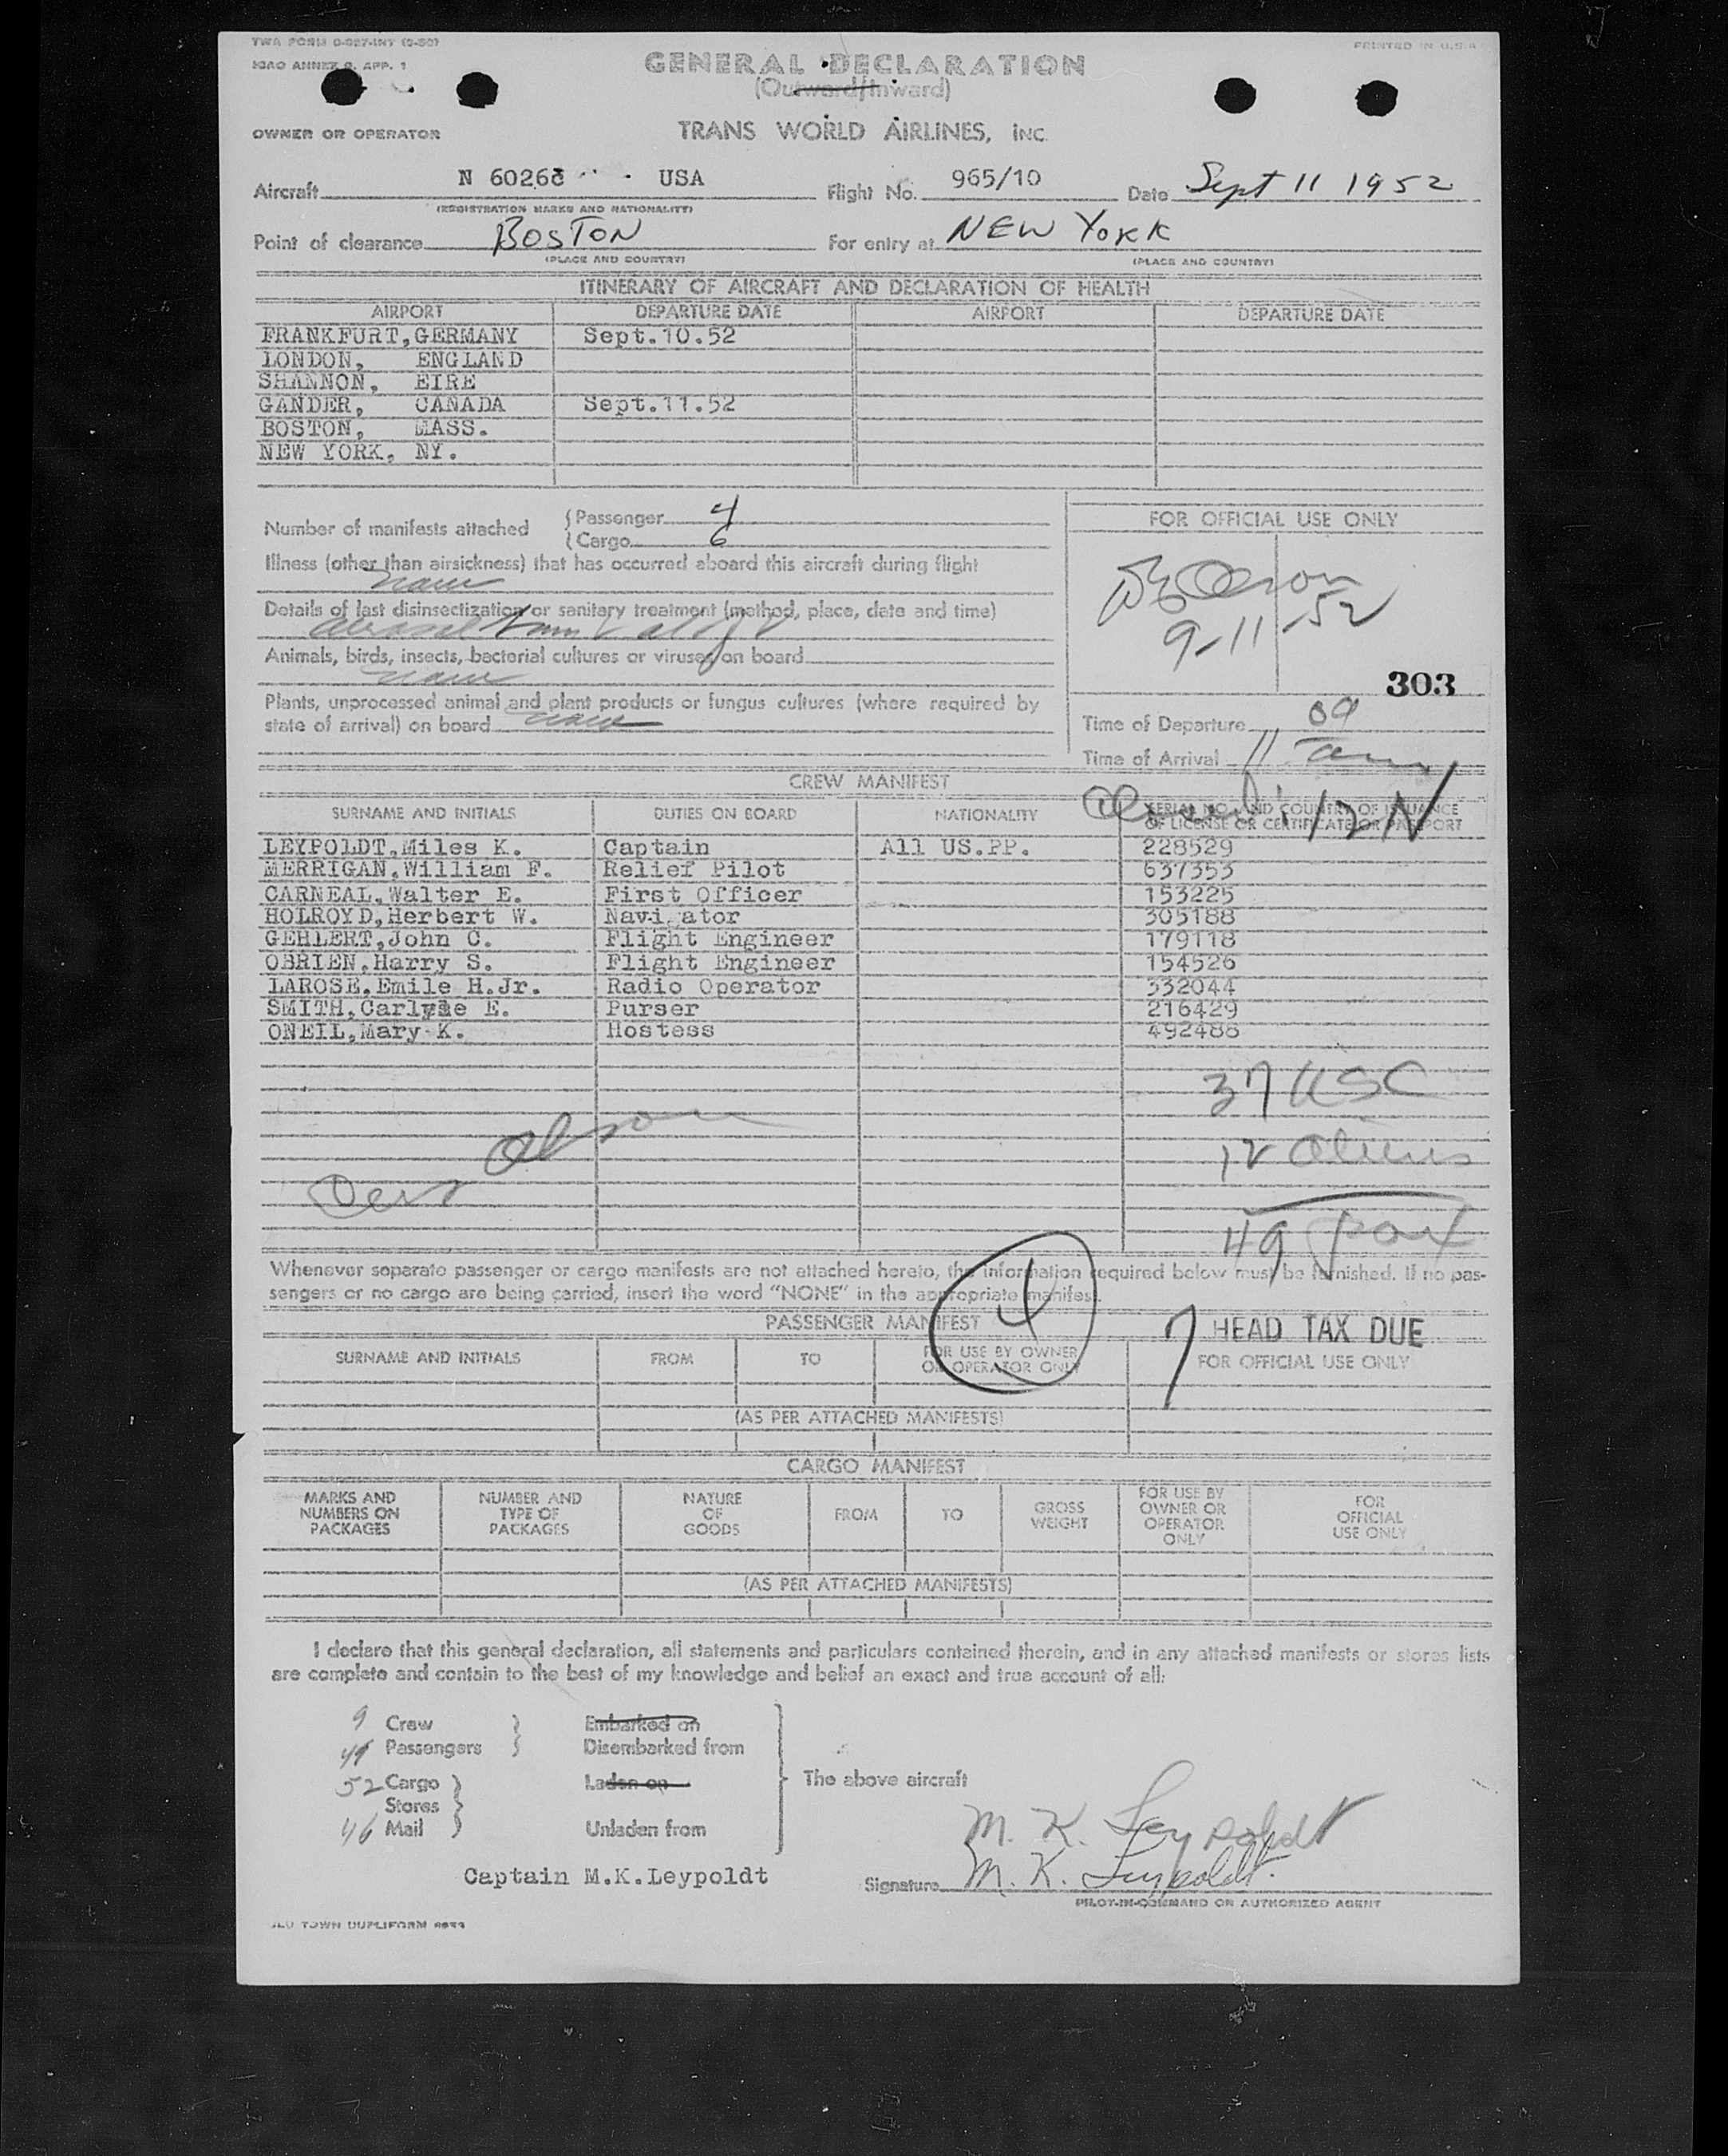 ICAO ANNEX 9, APP. 1
PRINTED IN U.S.A.
GENERAL DECLARATION
(Outward/Inward)
OWNER OR OPERATOR TRANS WORLD AIRLINES, INC.
Aircraft N 60268 USA Flight No. 965/10 Date Sept 11 1952
(REGISTRATION MARKS AND NATIONALITY)
Point of clearance BOSTON For entry at NEW YORK
(PLACE AND COUNTRY) (PLACE AND COUNTRY)
ITINERARY OF AIRCRAFT AND DECLARATION OF HEALTH
AIRPORT DEPARTURE DATE AIRPORT DEPARTURE DATE
FRANKFURT,GERMANY Sept.10.52
LONDON, ENGLAND
SHANNON, EIRE
GANDER, CANADA Sept.11.52
BOSTON, MASS.
NEW YORK, NY.
Number of manifests attached { Passenger 4
{ Cargo 6
Illness (other than airsickness) that has occurred aboard this aircraft during flight
Details of last disinsectization or sanitary treatment (method, place, date and time)
Animals, birds, insects, bacterial cultures or viruses on board
Plants, unprocessed animal and plant products or fungus cultures (where required by
state of arrival) on board
FOR OFFICIAL USE ONLY
9-11-52
303
Time of Departure 09
Time of Arrival 11
CREW MANIFEST
SURNAME AND INITIALS DUTIES ON BOARD NATIONALITY SERIAL NO. AND COUNTRY OF ISSUANCE
OF LICENSE OR CERTIFICATE OR PASSPORT
LEYPOLDT,Miles K. Captain All US.PP. 228529
MERRIGAN,William F. Relief Pilot 637353
CARNEAL,Walter E. First Officer 153225
HOLROYD,Herbert W. Navi ator 305188
GEHLERT,John C. Flight Engineer 179118
OBRIEN,Harry S. Flight Engineer 154526
LAROSE,Emile H.Jr. Radio Operator 332044
SMITH, E. Purser 216429
ONEIL,Mary K. Hostess 492488
37 USC
12 Aliens
49 pax
Whenever separate passenger or cargo manifests are not attached hereto, the information required below must be furnished. If no pas-
sengers or no cargo are being carried, insert the word "NONE" in the appropriate manifest.
PASSENGER MANIFEST
7 HEAD TAX DUE
SURNAME AND INITIALS FROM TO FOR USE BY OWNER
OR OPERATOR ONLY FOR OFFICIAL USE ONLY
(AS PER ATTACHED MANIFESTS)
CARGO MANIFEST
MARKS AND
NUMBERS ON
PACKAGES
NUMBER AND
TYPE OF
PACKAGES
NATURE
OF
GOODS
FROM
TO
GROSS
WEIGHT
FOR USE BY
OWNER OR
OPERATOR
ONLY
FOR
OFFICIAL
USE ONLY
(AS PER ATTACHED MANIFESTS)
I declare that this general declaration, all statements and particulars contained therein, and in any attached manifests or stores lists
are complete and contain to the best of my knowledge and belief an exact and true account of all:
9 Crew } Embarked on
49 Passengers } Disembarked from
52 Cargo } Laden on The above aircraft
Stores }
46 Mail } Unladen from
M. K. Leypoldt
Captain M.K.Leypoldt Signature M. K. Leypoldt
PILOT-IN-COMMAND OR AUTHORIZED AGENT